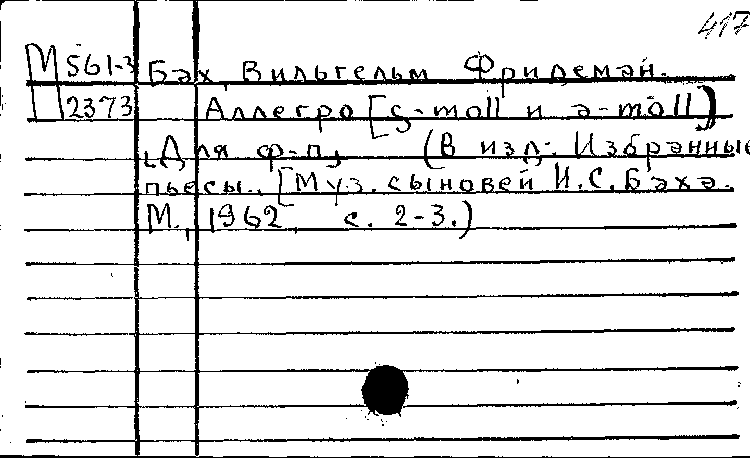 417
М 561-3 Бах, Вильгельм Фридеман.
П 2373 Аллегро [g-moll и a-moll]
[Для ф-п] (В изд: Избранные
пьесы.. [Муз. сыновей И.С.Баха.
М., 1962, с. 2-3.)